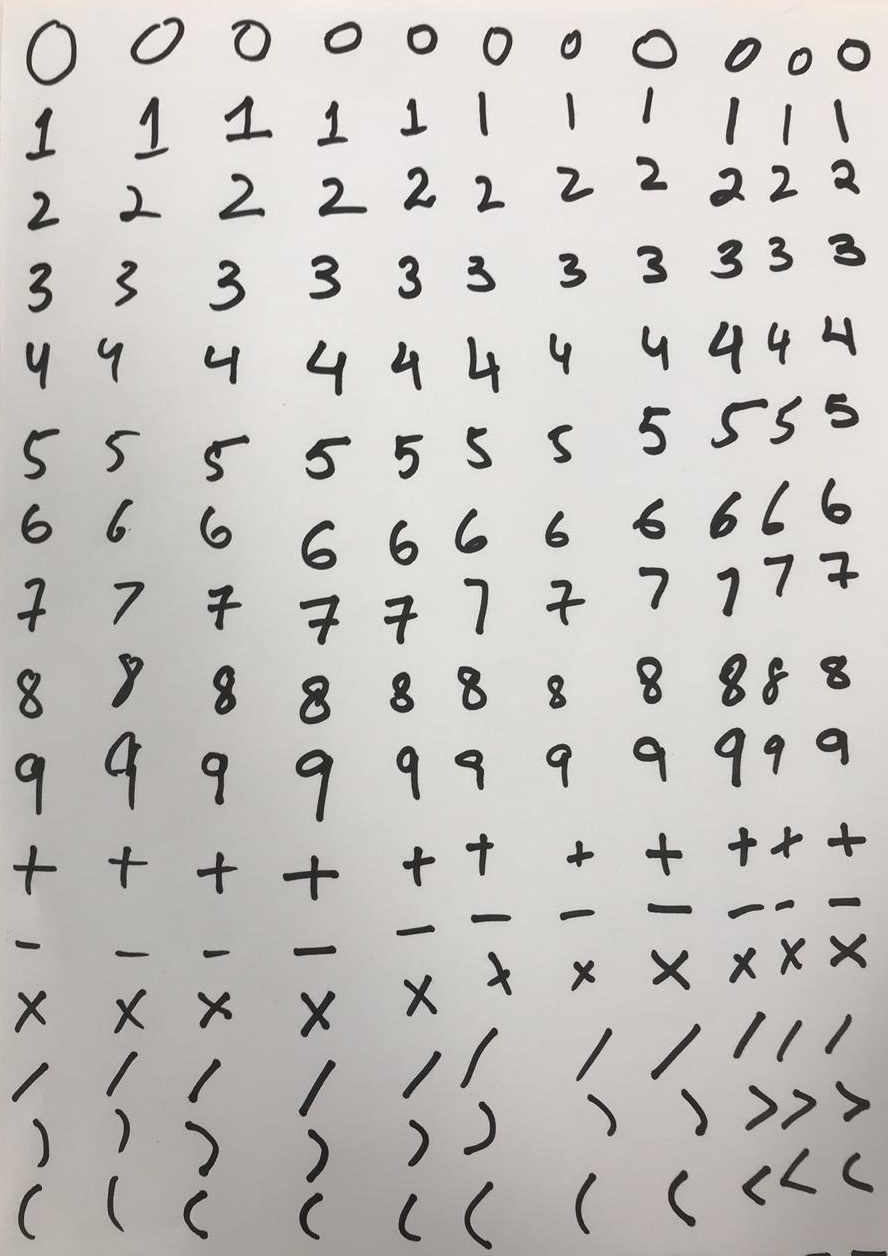 0 0 0 0 0 0 0 0 0 0 0
1 1 1 1 1 1 1 1 1 1 1
2 2 2 2 2 2 2 2 2 2 2
3 3 3 3 3 3 3 3 3 3 3
4 4 4 4 4 4 4 4 4 4 4
5 5 5 5 5 5 5 5 5 5 5
6 6 6 6 6 6 6 6 6 6 6
7 7 7 7 7 7 7 7 7 7 7
8 8 8 8 8 8 8 8 8 8 8
9 9 9 9 9 9 9 9 9 9 9
+ + + + + + + + + + +
- - - - - - - - - - -
x x x x x x x x x x x
/ / / / / / / / / / /
) ) ) ) ) ) ) ) > > >
( ( ( ( ( ( ( ( < < (